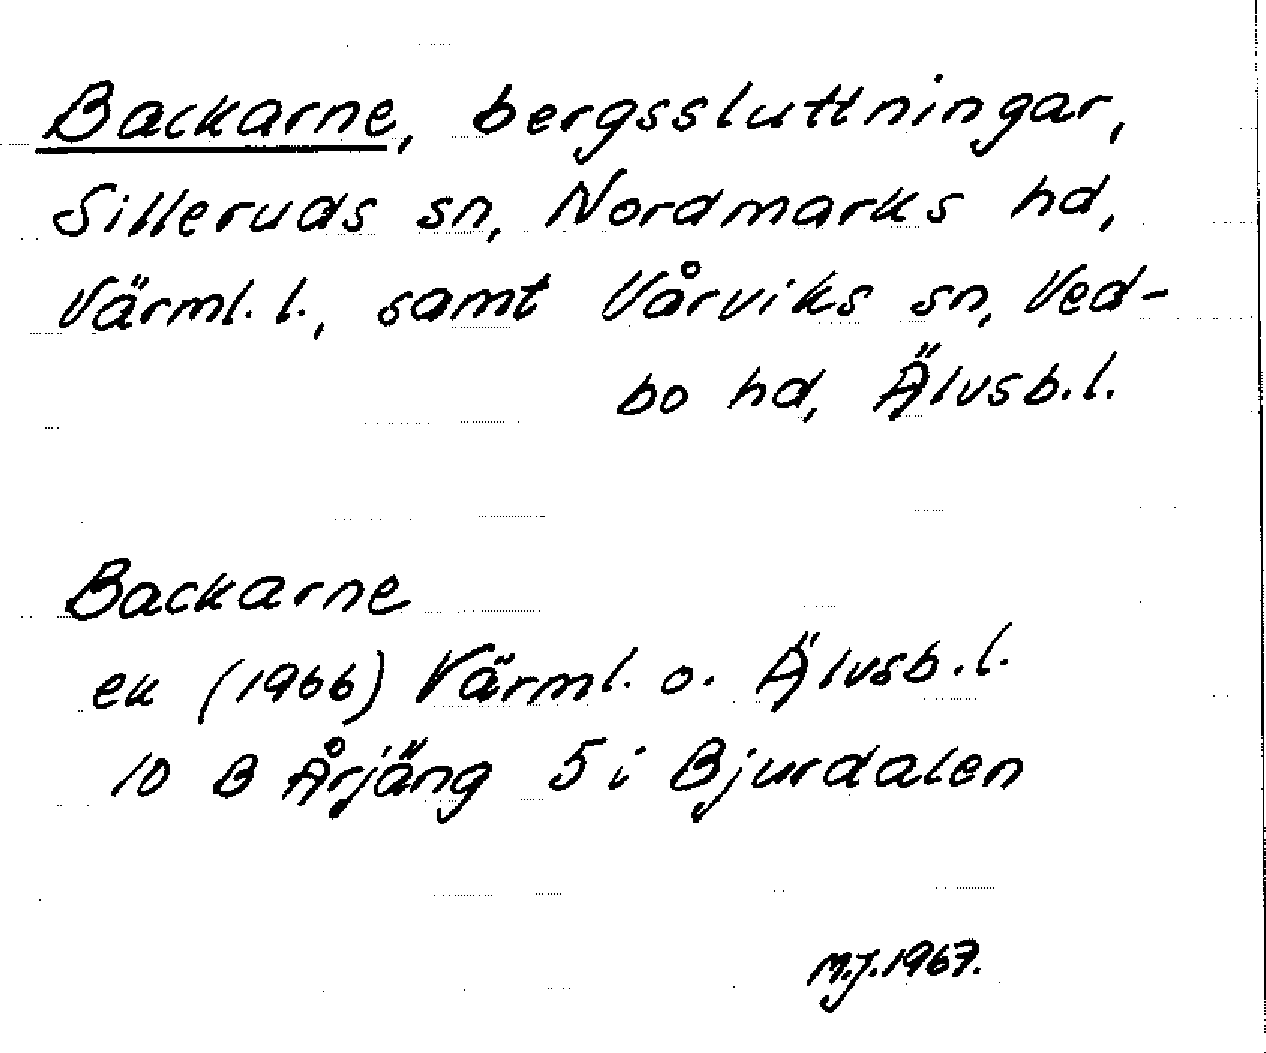 Backarne, bergssluttningar,
Silleruds sn, Nordmarks hd,
Värml. l., samt Vårviks sn, Ved-
bo hd, Älvsb. l.
Backarne
ek (1966) Värml. o. Älvsb. l.
10 B Årjäng 5 i Bjurdalen
M.J. 1967.